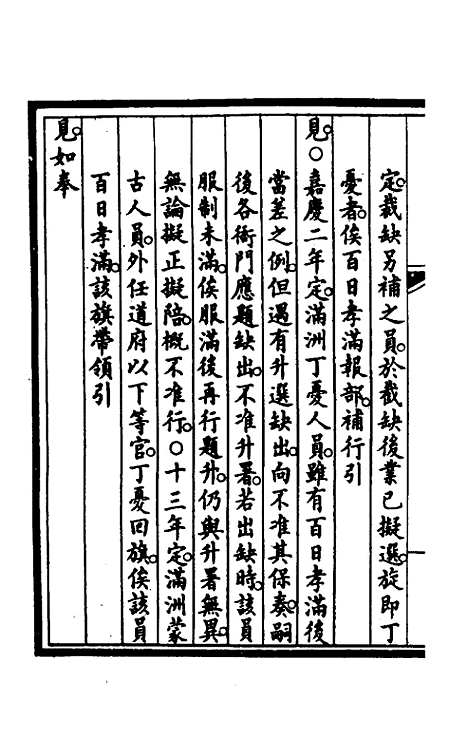 定。裁缺另補之員。於裁缺後業已擬選。旋即丁
憂者。俟百日孝滿報部。補行引
見。○嘉慶二年定。滿洲丁憂人員。雖有百日孝滿後
當差之例。但遇有升選缺出。向不准其保奏。嗣
後各衙門應題缺出。不准升署。若出缺時。該員
服制未滿。俟服滿後再行題升。仍與升署無異。
無論擬正擬陪。概不准行。○十三年定。滿洲蒙
古人員。外任道府以下等官。丁憂回旗。俟該員
百日孝滿。該旗帶領引
見。如奉